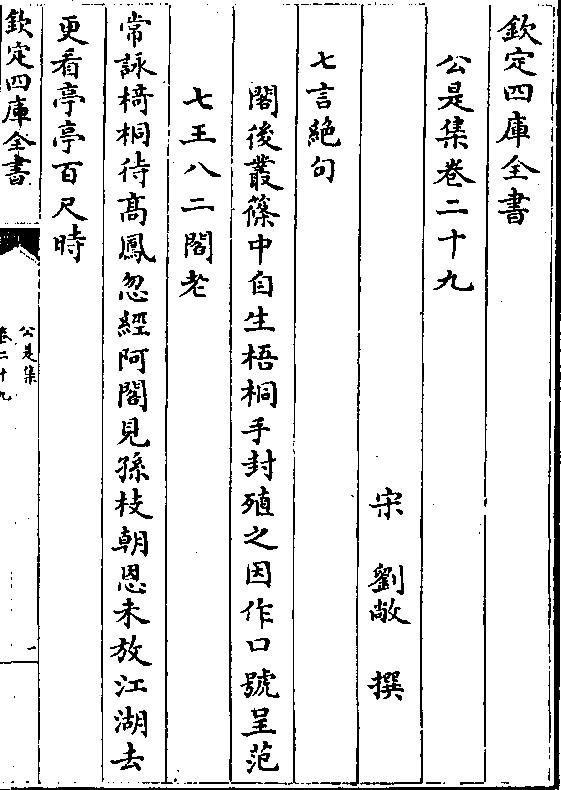 欽定四庫全書
公是集卷二十九
宋 劉敞 撰
七言絕句
閣後叢篠中自生梧桐手封殖之因作口號呈范
七王八二閣老
常詠椅桐待高鳳忽經阿閣見孫枝朝恩未放江湖去
更看亭亭百尺時
欽定四庫全書
公是集
卷二十九
一